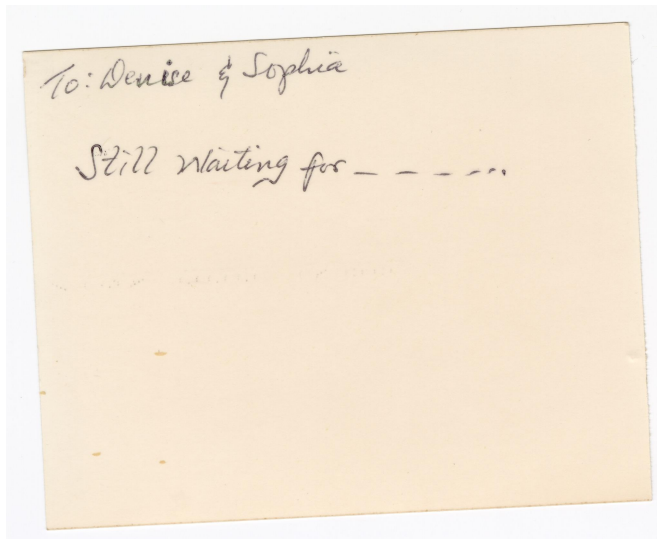 To: Denise & Sophia
Still waiting for _ _ _ _ ...